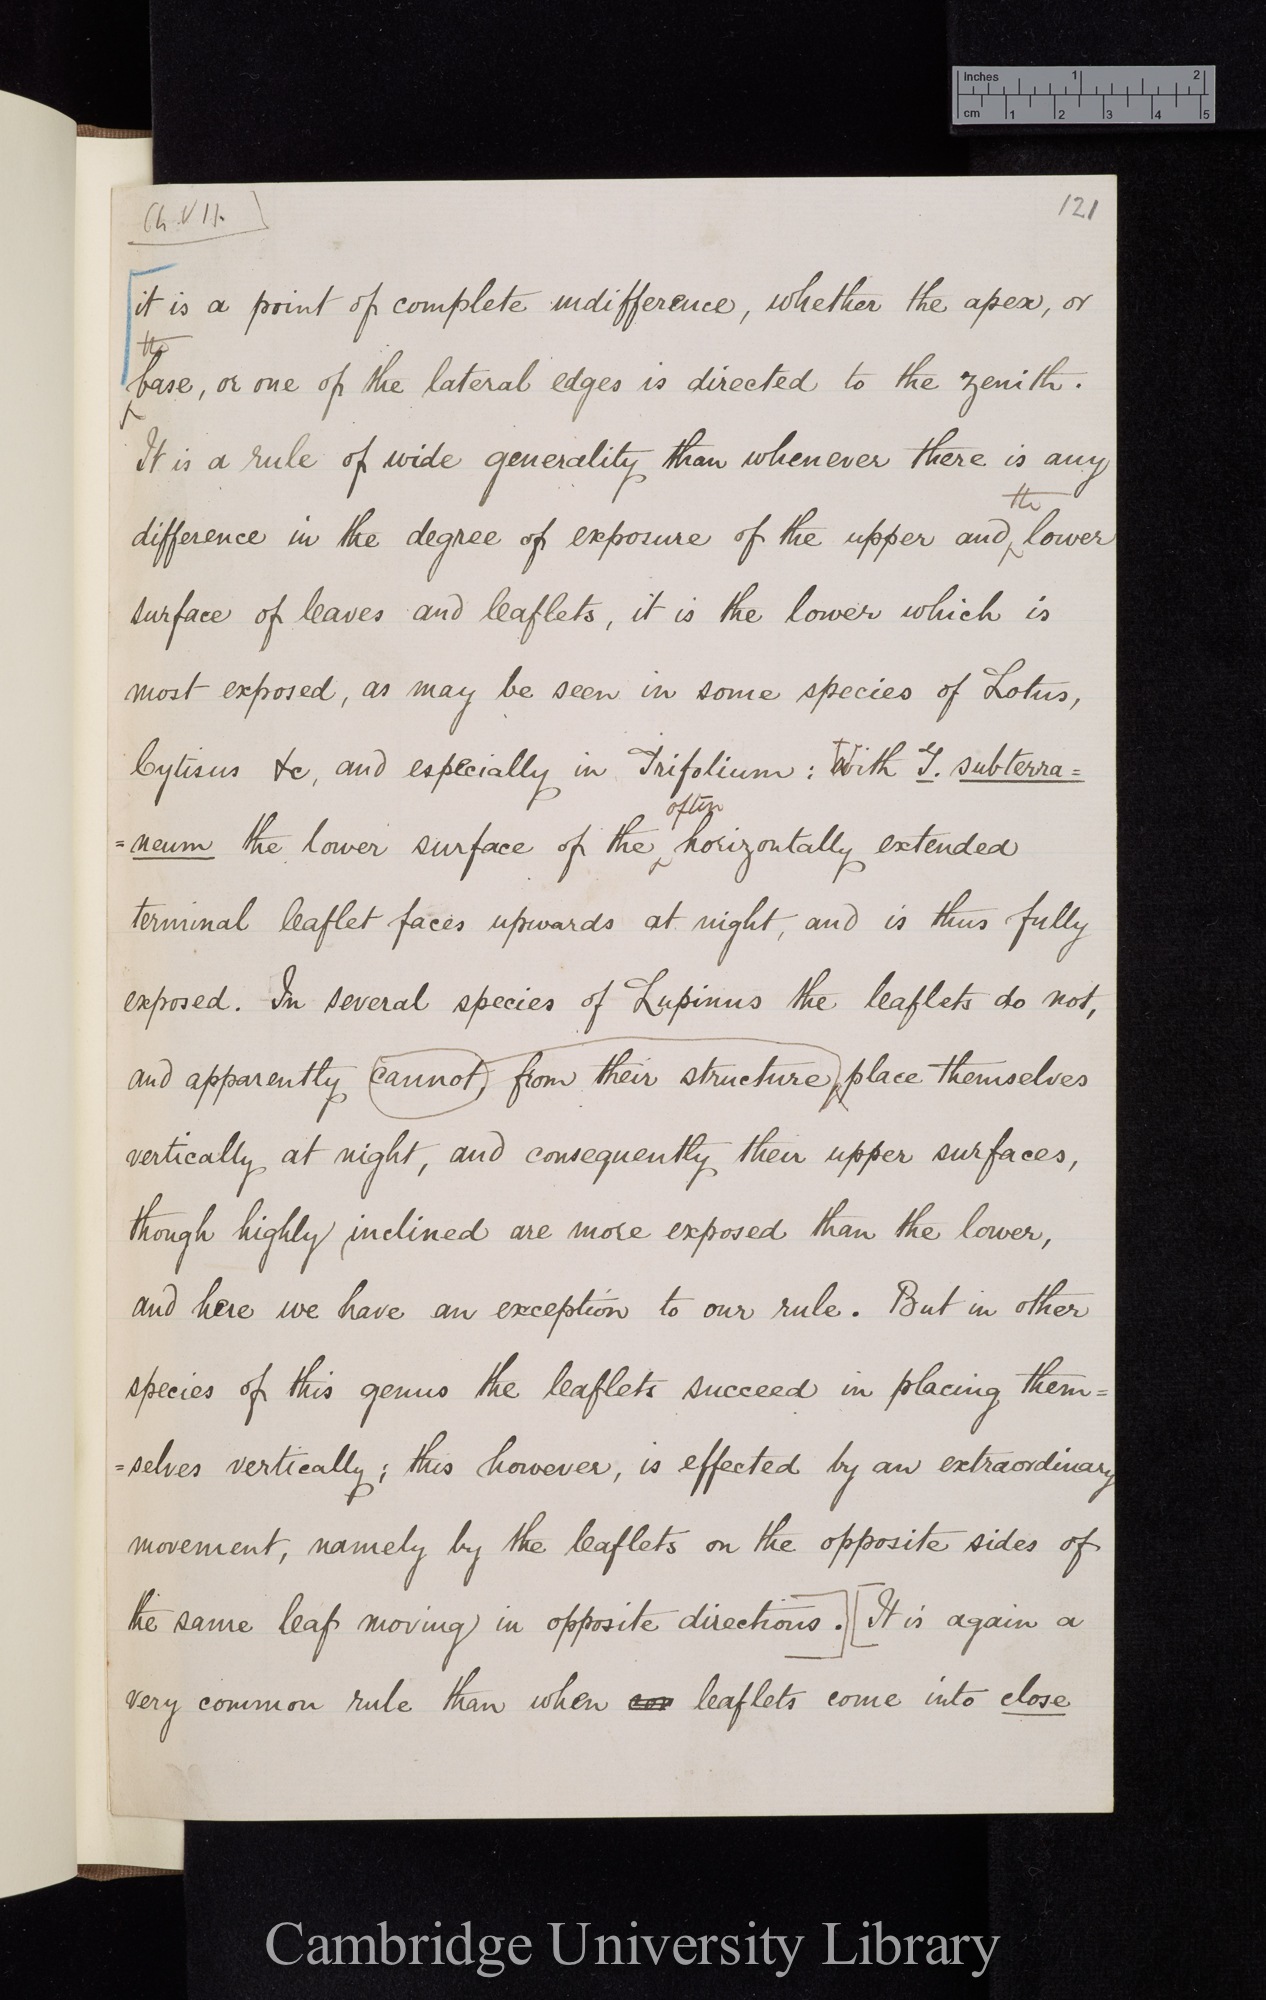 Inches 1 2
cm 1 2 3 4 5
Ch. VII.
121
it is a point of complete indifference, whether the apex, or
the
base, or one of the lateral edges is directed to the zenith.
It is a rule of wide generality than whenever there is any
the
difference in the degree of exposure of the upper and lower
surface of leaves and leaflets, it is the lower which is
most exposed, as may be seen in some species of Lotus,
Cytisus &c, and especially in Trifolium: With T. subterra=
often
=neum the lower surface of the horizontally extended
terminal leaflet faces upwards at night, and is thus fully
exposed. In several species of Lupinus the leaflets do not,
and apparently cannot, from their structure, place themselves
vertically at night, and consequently their upper surfaces,
though highly inclined are more exposed than the lower,
and here we have an exception to our rule. But in other
species of this genus the leaflets succeed in placing them=
=selves vertically; this however, is effected by an extraordinary
movement, namely by the leaflets on the opposite sides of
the same leaf moving in opposite directions.] [It is again a
very common rule than when leaflets come into close
Cambridge University Library